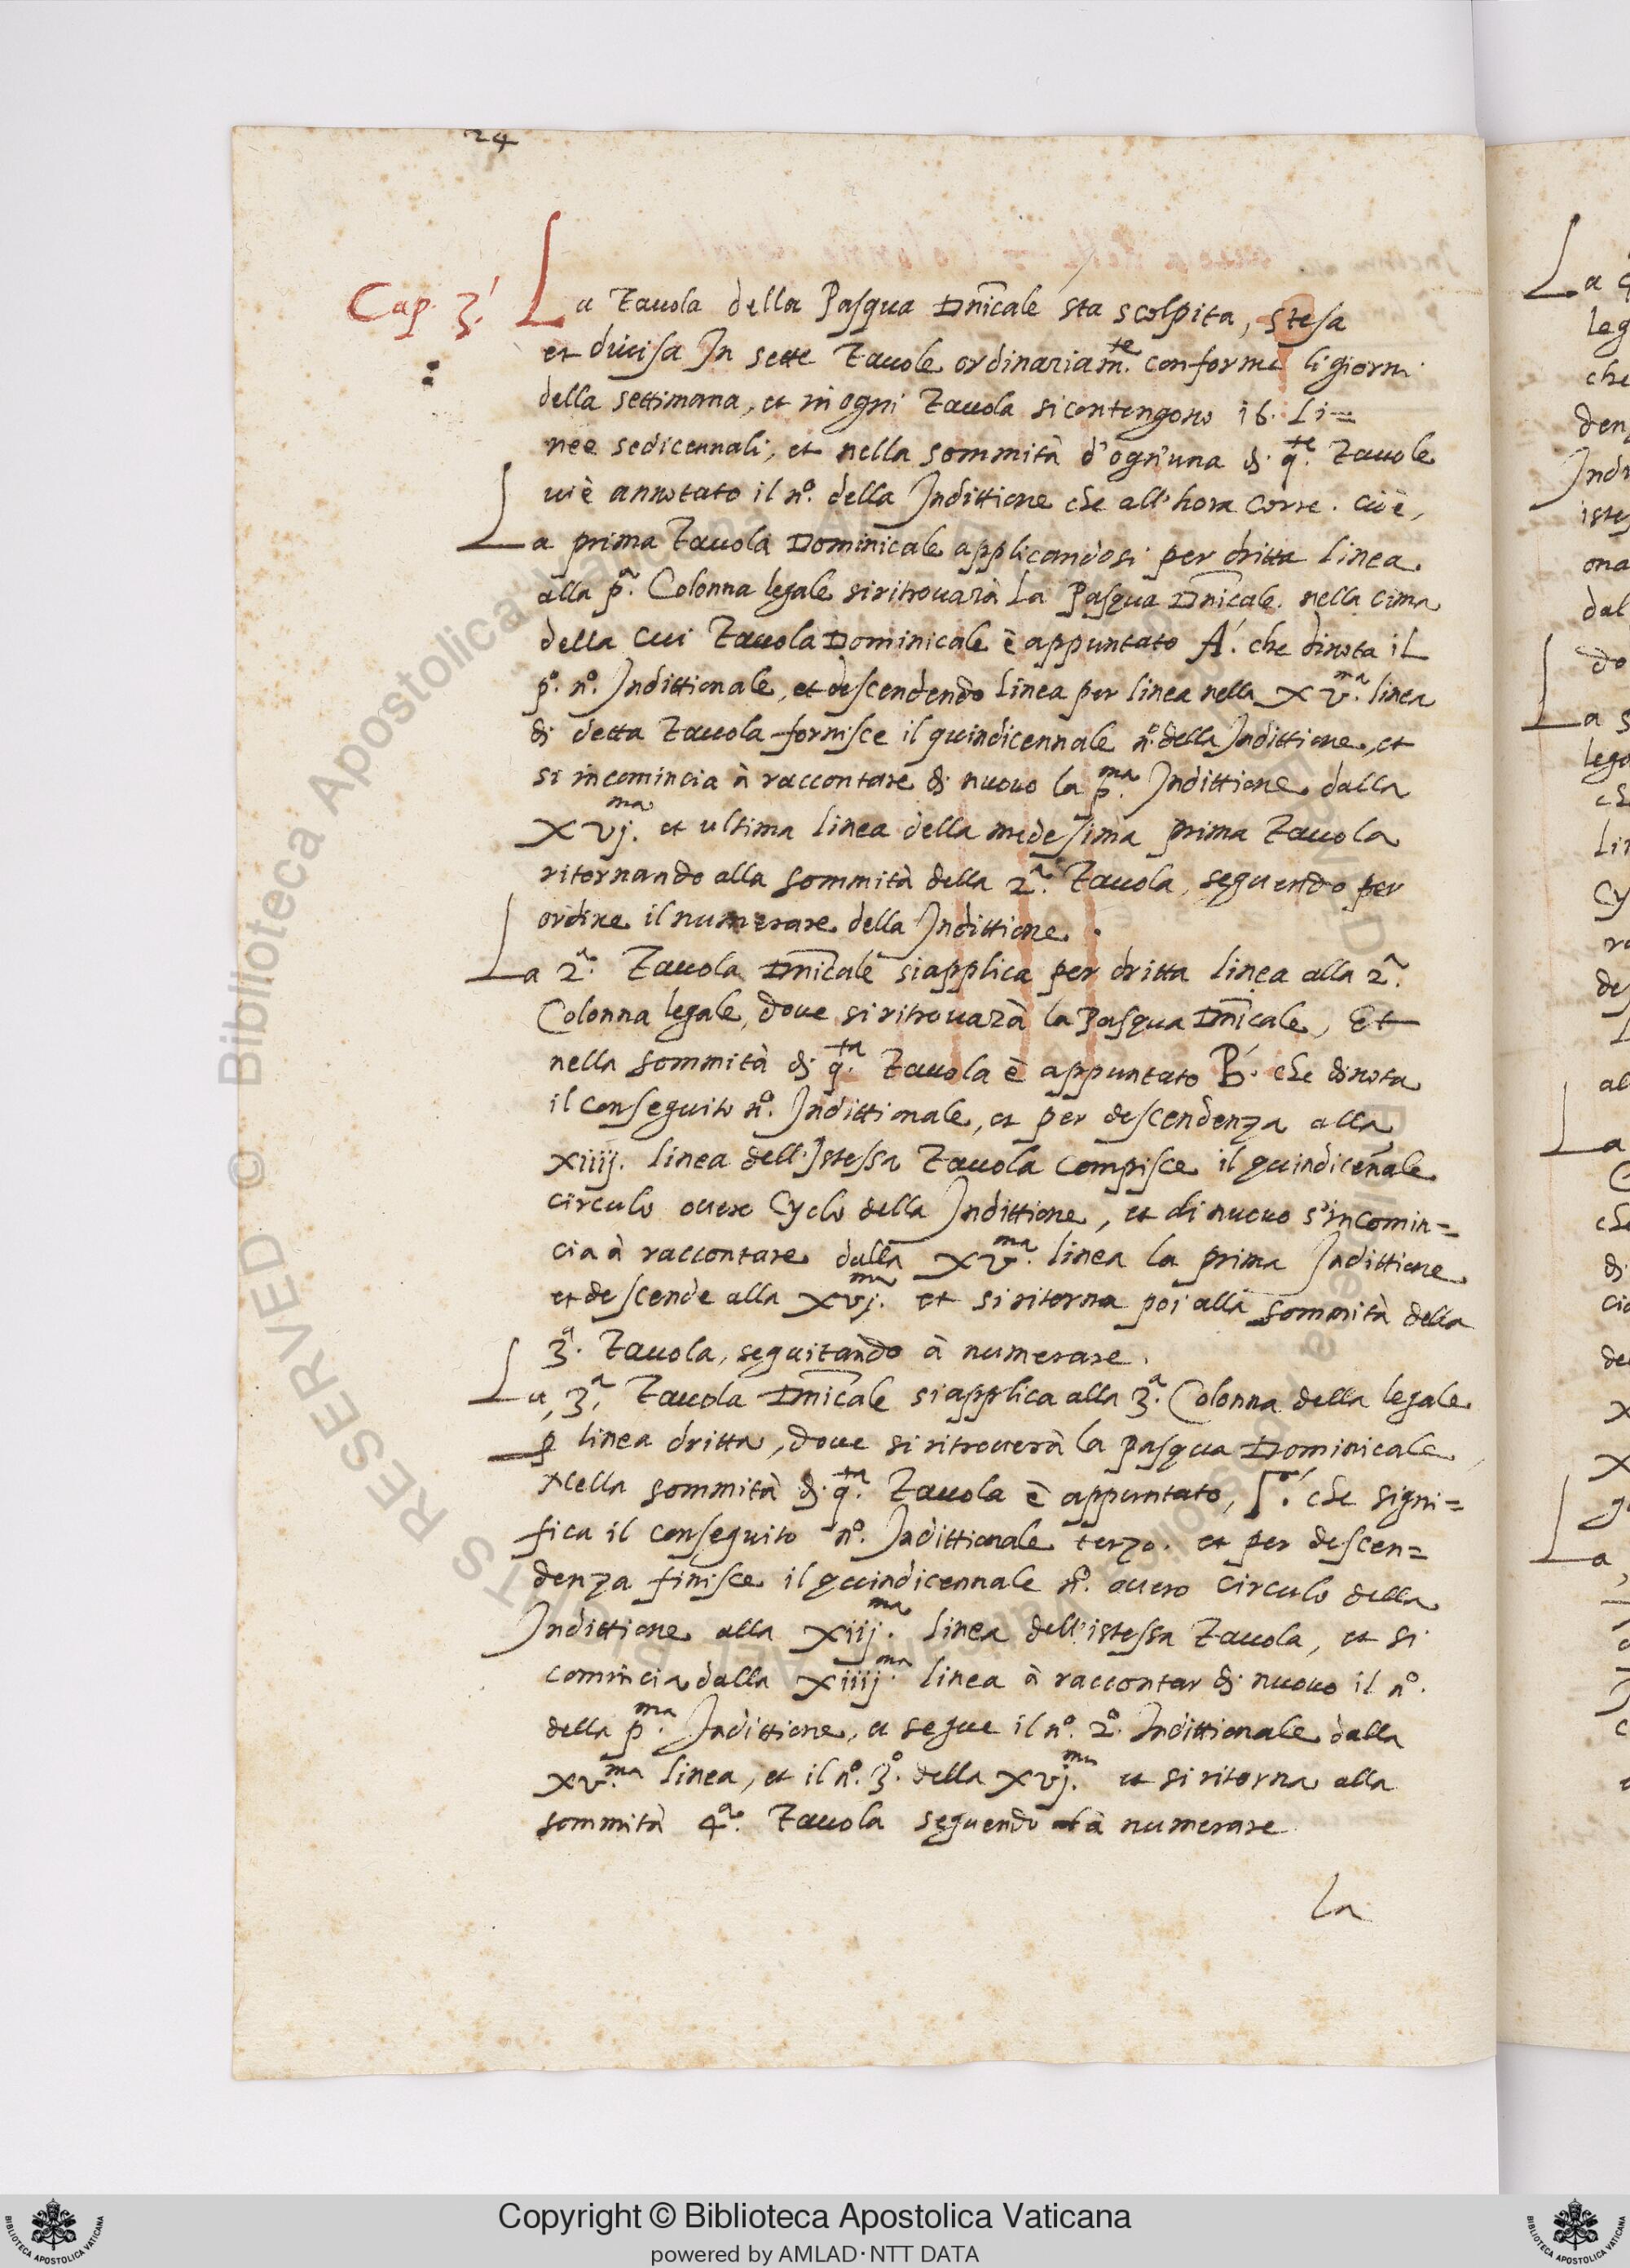 24
Cap. 3.
La Tavola della Pasqua Dnicale sta scolpita, stesa
et divisa In sette Tavole ordinariam.te conforme li giorni
della settimana, et in ogni Tavola si contengono 16. Li=
nee sedicennali, et nella sommità d'ogn'una di q.te Tavole
vi è annotato il n.o della Indittione che all'hora corre. cioè,
La prima Tavola Dominicale applicandosi per dritta linea
alla p.a Colonna legale si ritrovarà La Pasqua Dnicale. nella cima
della cui Tavola Dominicale è appuntato A'. che dinota il
p.o n.o Indittionale, et descendendo linea per linea nella XV.ma linea
di detta Tavola fornisce il quindicennale n.o della Indittione, et
si incomincia à raccontare di nuovo la p.ma Indittione dalla
XVj.ma et ultima linea della medesima prima Tavola
ritornando alla sommità della 2.a Tavola, seguendo per
ordine il numerare della Indittione.
La 2.a Tavola Dnicale si applica per dritta linea alla 2.a
Colonna legale, dove si ritrovarà la Pasqua Dnicale, Et
nella sommità di q.ta Tavola è appuntato B'. che dinota
il conseguito n.o Indittionale, et per descendenza alla
xiiij. linea dell'Istessa Tavola compisce il quindicenale
circulo overo Cyclo della Indittione, et di nuovo s'incomin=
cia à raccontare dalla XV.ma linea la prima Indittione
et descende alla XVj.ma et si ritorna poi alla sommità della
3.a Tavola, seguitando à numerare.
La, 3.a Tavola Dnicale si applica alla 3.a Colonna della legale
ꝑ linea dritta, dove si ritroverà la pasqua Dominicale,
Nella sommità di q.ta Tavola è appuntato, Γ'. che signi=
fica il conseguito n.o Indittionale terzo. et per descen=
denza finisce il quindicennale n.o overo circulo della
Indittione alla Xiij.ma linea dell'istessa Tavola, et si
comincia dalla Xiiij.ma linea à raccontar di nuovo il n.o
della p.ma Indittione, et segue il n.o 2.o Indittionale dalla
XV.ma linea, et il n.o 3.o della XVj.ma et si ritorna alla
sommità 4.a Tavola seguendo à numerare
La
© Biblioteca Apostolica Vaticana
RESERVED
Copyright © Biblioteca Apostolica Vaticana
powered by AMLAD·NTT DATA